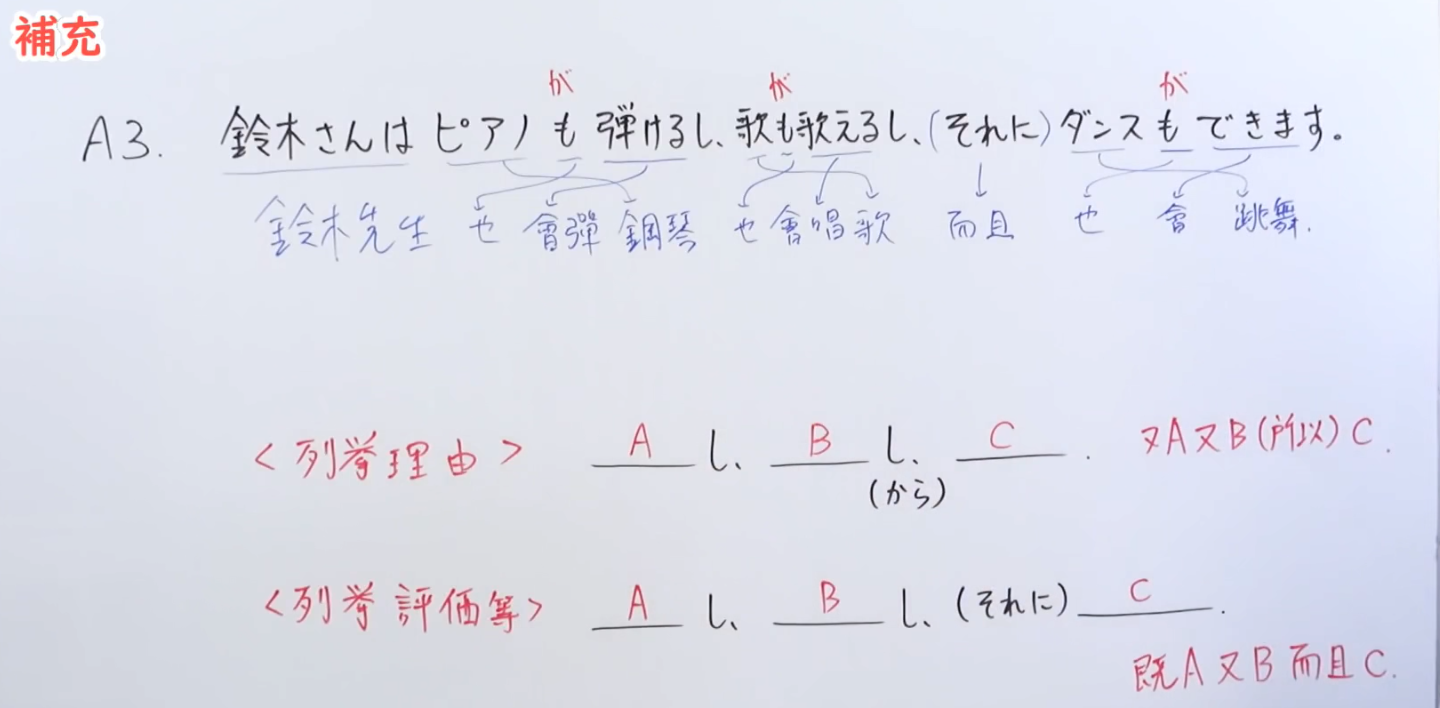 補充
が が が
A3. 鈴木さんは ピアノも 弾けるし、歌も歌えるし、(それに)ダンスも できます。
鈴木先生 也 會彈 鋼琴 也 會唱歌 而且 也 會 跳舞.
<列挙理由> A し、 B し、 C . 又A又B(所以)C.
(から)
<列挙評価等> A し、 B し、(それに) C .
既A又B而且C.